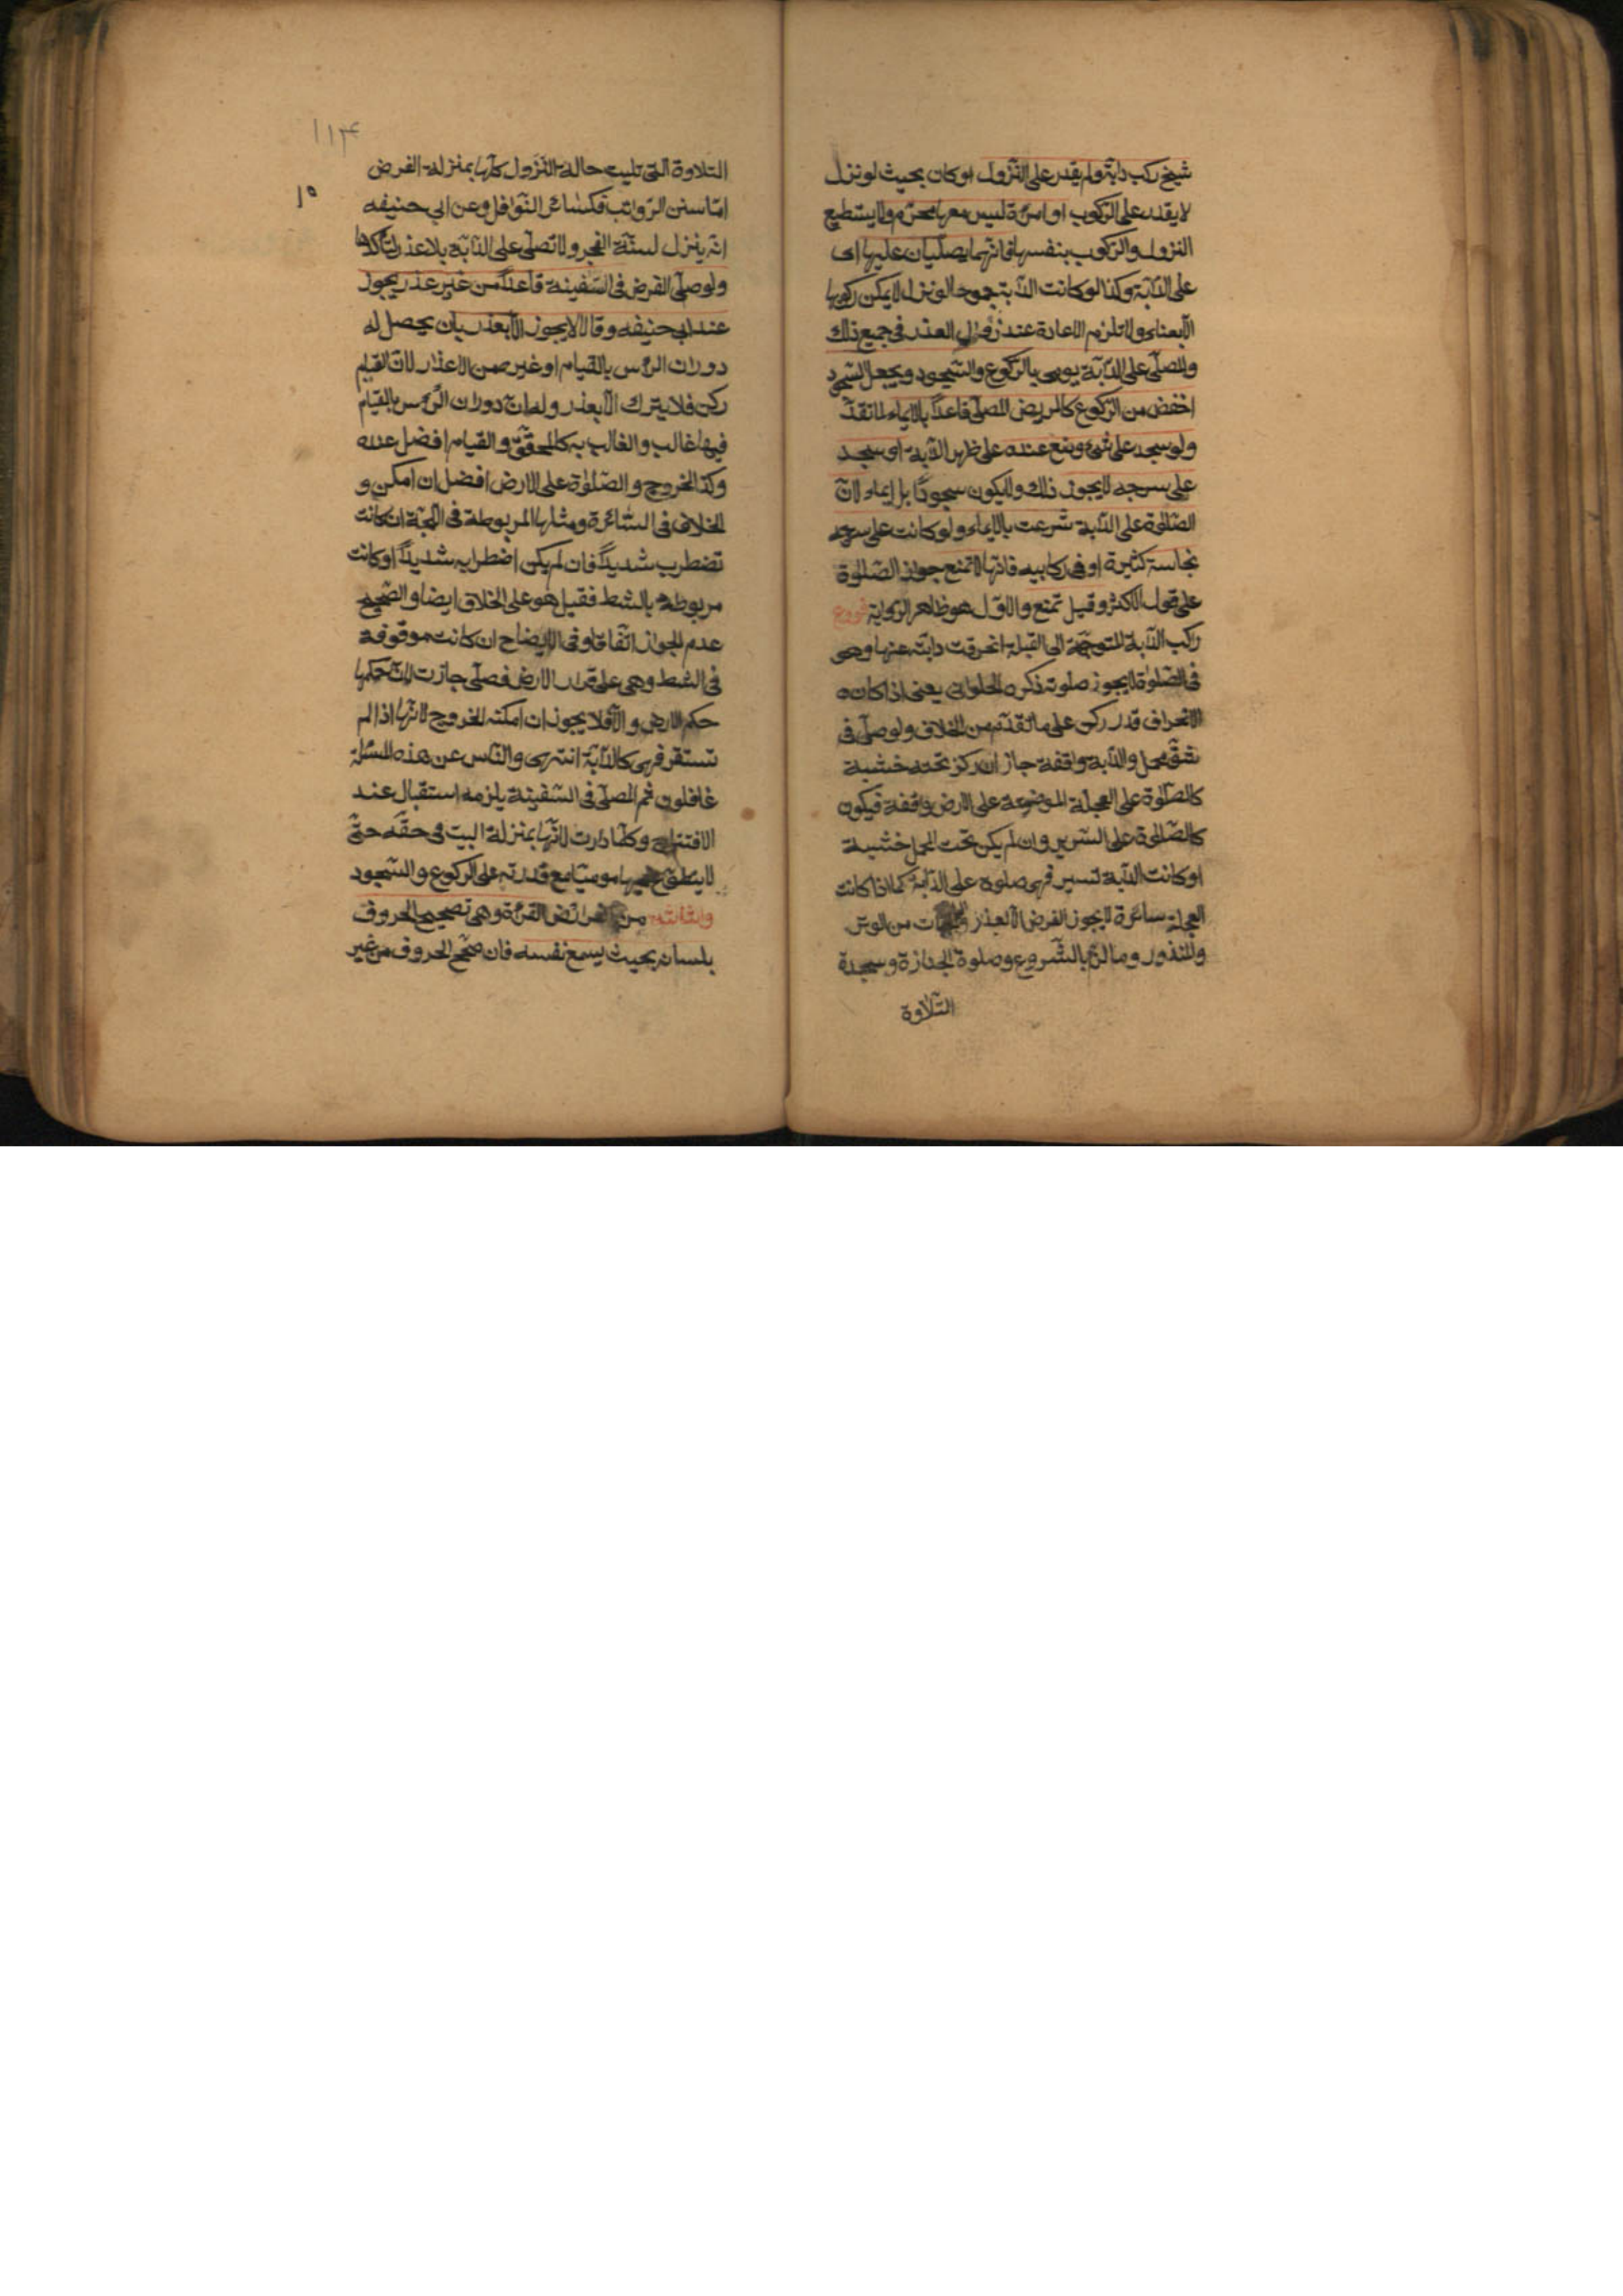 شيخ ركب دابة ولم يقدر على النزول او كان بحيث لو نزل
لا يقدر على الركوب او امرأة ليس معها محرم ولا يستطيع
النزول والركوب بنفسها فانهما يصليان عليها اى
على الدابة وكذا لو كانت الدابة جموحا لو نزل لا يمكن ركوبها
الا بعناء ولا تلزم الاعادة عند زوال العذر فى جميع ذلك
والمصلى على الدابة يومى بالركوع والسجود ويجعل السجود
اخفض من الركوع كالمريض المصلى قاعدا بالايماء لما تقدم
ولو سجد على شئ وضع عنده على ظهر الدابة او سجد
على سرجه لا يجوز ذلك ولا يكون سجودا بل ايماء لان
الصلوة على الدابة شرعت بالايماء ولو كانت على سرجه
نجاسة كثيرة او فى ركابيه فانها لا تمنع جواز الصلوة
على قول الاكثر وقيل تمنع والاول هو ظاهر الرواية فروع
راكب الدابة المتوجهة الى القبلة انحرفت دابته عنها وهى
فى الصلوة لا يجوز صلوته ذكره الحلوانى يعنى اذا كان
الانحراف قدر ركن على ما تقدم من الخلاف ولو صلى فى
شق محمل والدابة واقفة جاز ان ركز تحته خشبة
كالصلوة على العجلة الموضوعة على الارض واقفة فيكون
كالصلوة على السرير وان لم يكن تحت المحمل خشبة
او كانت الدابة تسير فهى صلوة على الدابة كما اذا كانت
العجلة سائرة لا يجوز الفرض الا بعذر من الوتر
والمنذور وما لزم بالشروع وصلوة الجنازة وسجدة
التلاوة
١١٣
التلاوة التى تليت حالة النزول كلها بمنزلة الفرض
اما سنن الرواتب فكسائر النوافل وعن ابى حنيفه
انه ينزل لسنة الفجر ولا تصلى على الدابة بلا عذر لتأكدها
ولو صلى الفرض فى السفينة قاعدا من غير عذر يجوز
عند ابى حنيفه وقالا لا يجوز الا بعذر بان يحصل له
دوران الرأس بالقيام او غيره من الاعذار لان القيام
ركن فلا يترك الا بعذر وله ان دوران الرأس بالقيام
فيها غالب والغالب به كالمحقق والقيام افضل عنده
وكذا الخروج والصلوة على الارض افضل ان امكن و
الخلاف فى السائرة ومثلها المربوطة فى اللجة ان كانت
تضطرب شديدا فان لم يكن اضطرابه شديدا او كانت
مربوطة بالشط فقيل هو على الخلاف ايضا والصحيح
عدم الجواز اتفاقا وفى الايضاح ان كانت موقوفة
فى الشط وهى على قرار الارض فصلى جازت لان حكمها
حكم الارض والا فلا يجوز ان امكنه الخروج لانها اذا لم
تستقر فهى كالدابة انتهى والناس عن هذه المسئلة
غافلون ثم المصلى فى السفينة يلزمه استقبال عند
الافتتاح وكلما دارت لانها بمنزلة البيت فى حقه حتى
لا يتطوع فيها موميا مع قدرته على الركوع والسجود
والثالثه من الفرائض القرأة وهى تصحيح الحروف
بلسانه بحيث يسمع نفسه فان صحح الحروف من غير